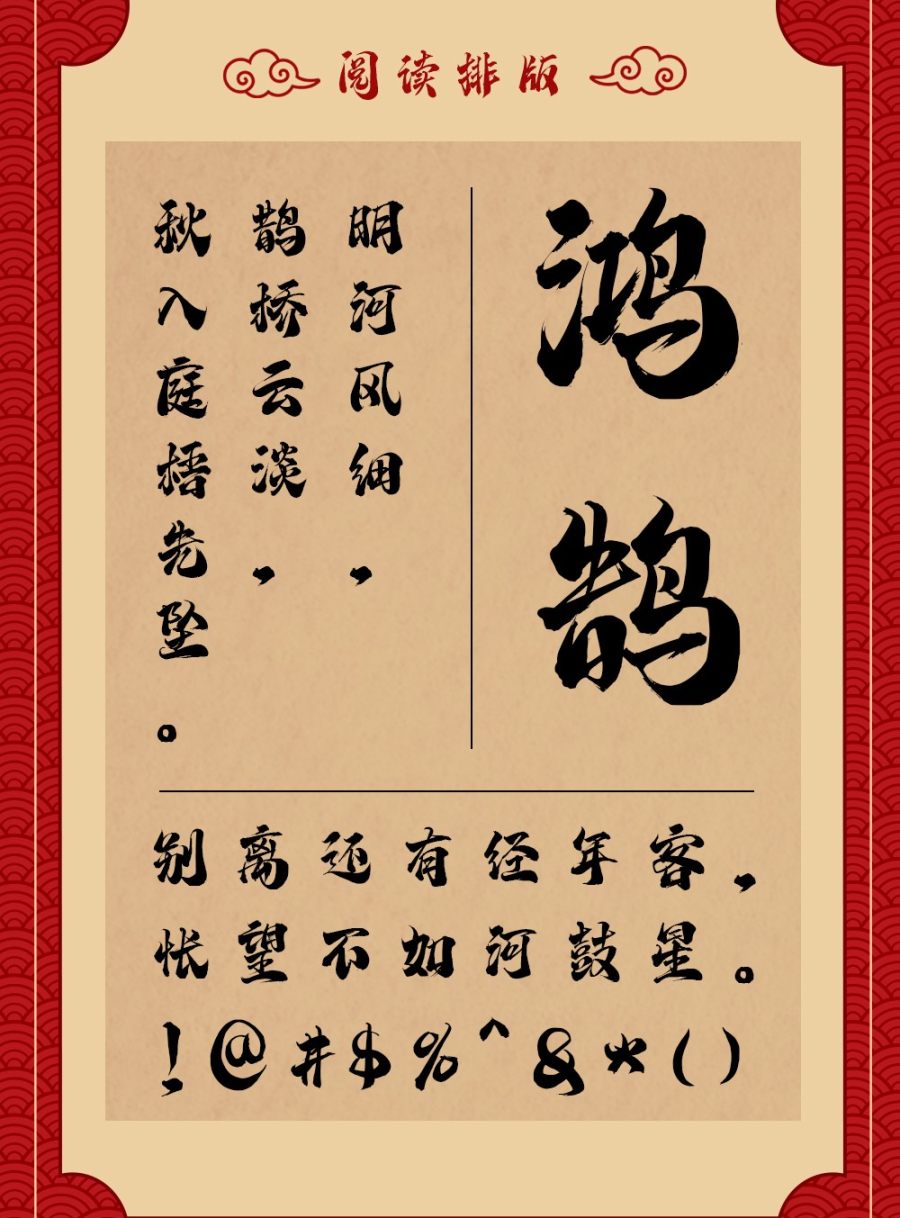 阅读排版
鸿鹄
明河风细，
鹊桥云淡，
秋入庭梧先坠。
别离还有经年客，
怅望不如河鼓星。
!@#$%^&*()